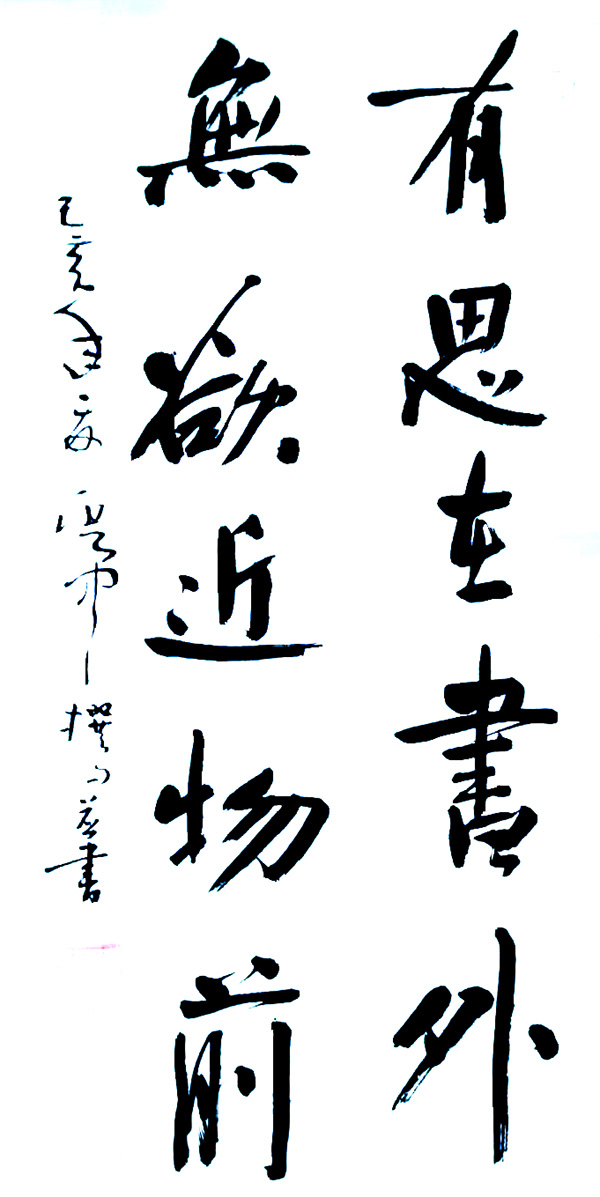 有思在書外
無欲近物前
己亥年夏 撰句并書